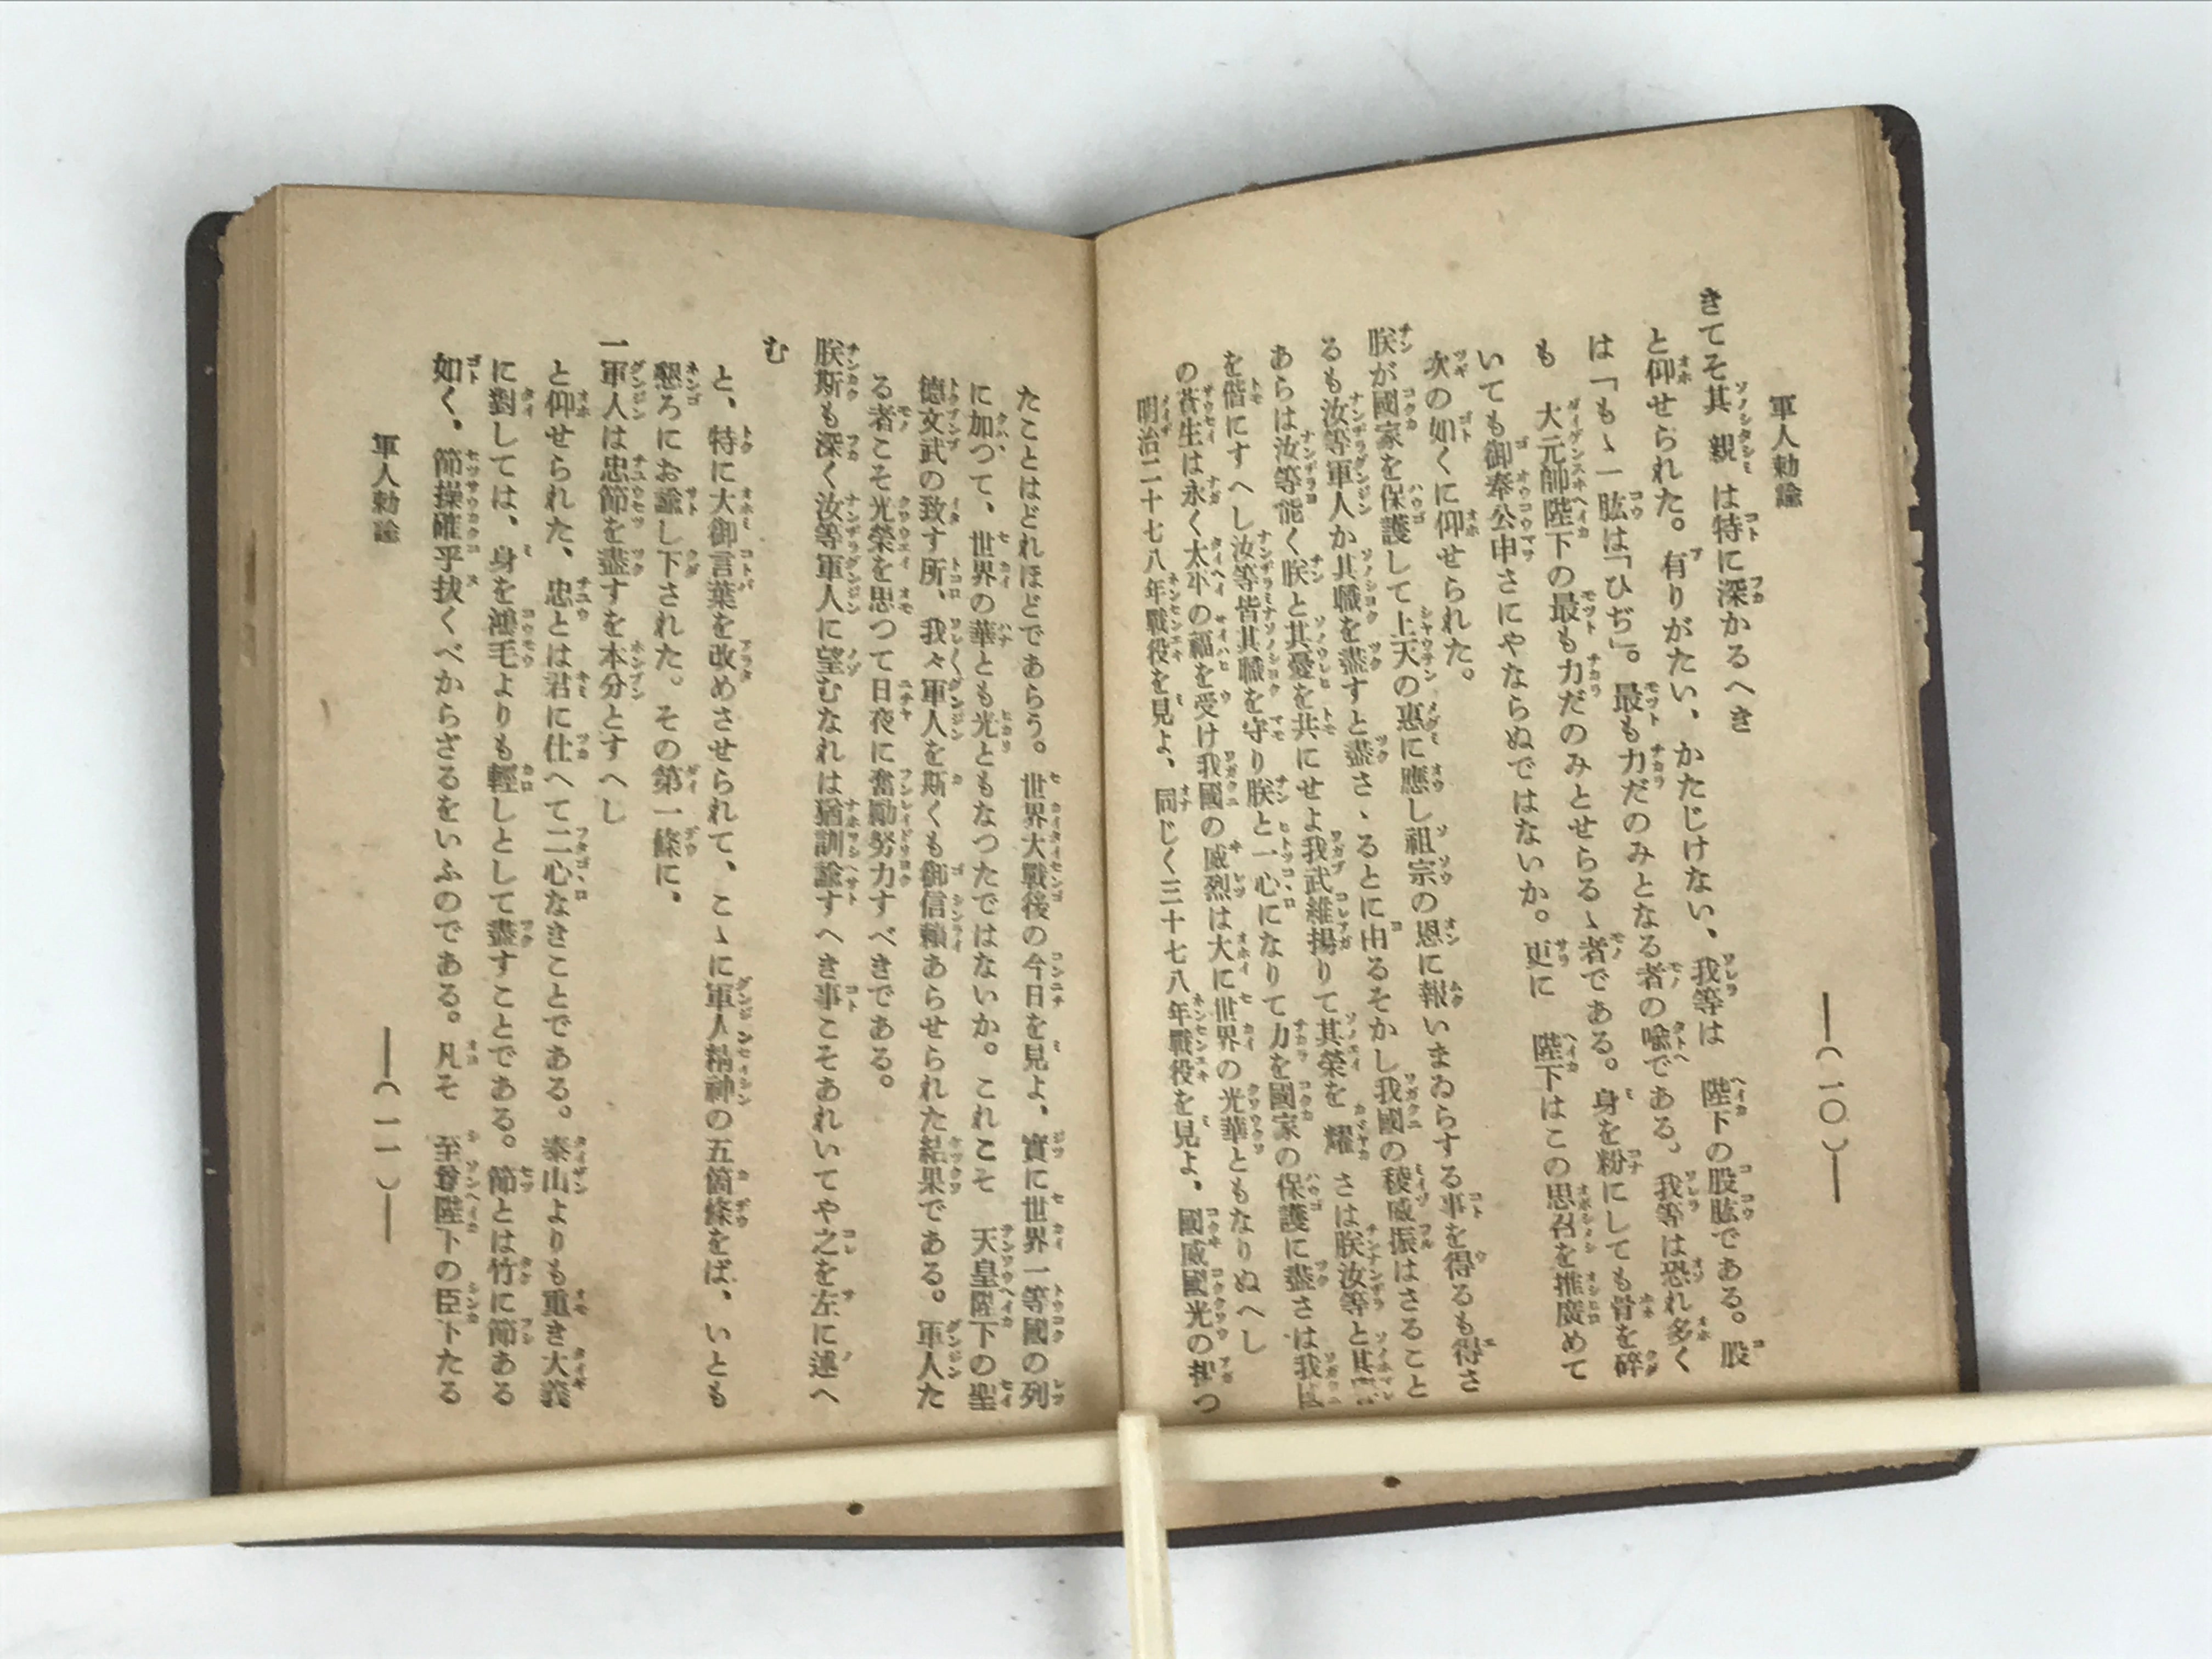 軍人勅諭
―(一〇)―
きてそ其親は特に深かるへき
と仰せられた。有りがたい、かたじけない、我等は 陛下の股肱である。股
は「もゝ一肱は「ひぢ」。最も力だのみとなる者の喩である。我等は恐れ多く
も 大元帥陛下の最も力だのみとせらるゝ者である。身を粉にしても骨を碎
いても御奉公申さにやならぬではないか。更に 陛下はこの思召を推廣めて
次の如くに仰せられた。
朕が國家を保護して上天の惠に應し祖宗の恩に報いまゐらする事を得るも得さ
るも汝等軍人か其職を盡すと盡さゝるとに由るそかし我國の稜威振はさること
あらは汝等能く朕と其憂を共にせよ我武維揚りて其榮を耀さは朕汝等と其
を偕にすへし汝等皆其職を守り朕と一心になりて力を國家の保護に盡さは我
の蒼生は永く太平の福を受け我國の威烈は大に世界の光華ともなりぬへし
明治二十七八年戰役を見よ、同じく三十七八年戰役を見よ、國威國光の揚つ
たことはどれほどであらう。世界大戰後の今日を見よ、實に世界一等國の列
に加つて、世界の華とも光ともなつたではないか。これこそ 天皇陛下の聖
德文武の致す所、我々軍人を斯くも御信賴あらせられた結果である。軍人た
る者こそ光榮を思つて日夜に奮勵努力すべきである。
朕斯も深く汝等軍人に望むなれは猶訓諭すへき事こそあれいてや之を左に述へ
む
と、特に大御言葉を改めさせられて、こゝに軍人精神の五箇條をば、いとも
懇ろにお諭し下された。その第一條に、
一軍人は忠節を盡すを本分とすへし
と仰せられた、忠とは君に仕へて二心なきことである。泰山よりも重き大義
に對しては、身を鴻毛よりも輕しとして盡すことである。節とは竹に節ある
如く、節操確乎拔くべからざるをいふのである。凡そ 至尊陛下の臣下たる
軍人勅諭
―(一一)―